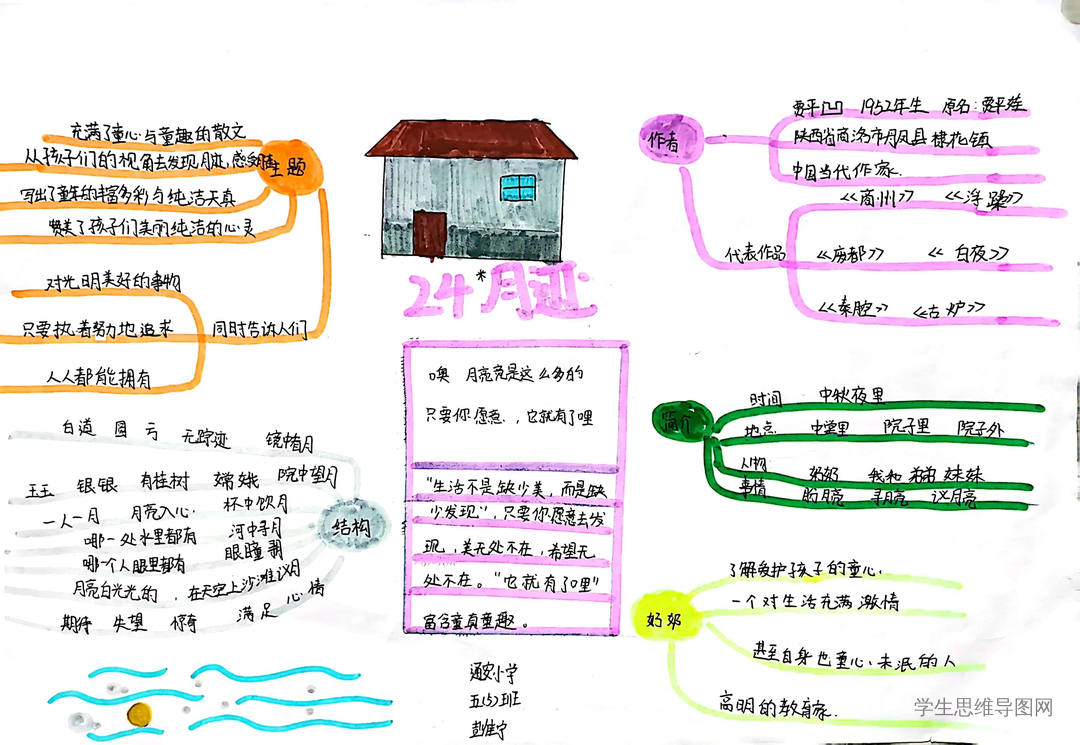 24*月迹
主题
充满了童心与童趣的散文
从孩子们的视角去发现月迹,感受月迹
写出了童年的丰富多彩与纯洁天真
赞美了孩子们美丽纯洁的心灵
同时告诉人们
对光明美好的事物
只要执着努力地追求
人人都能拥有
作者
贾平凹 1952年生 原名:贾平娃
陕西省商洛市丹凤县棣花镇
中国当代作家.
代表作品
《商州》 《浮躁》
《废都》 《白夜》
《秦腔》 《古炉》
噢 月亮竟是这么多的
只要你愿意,它就有了哩
“生活不是缺少美,而是缺
少发现”,只要你愿意去发
现,美无处不在,希望无
处不在。“它就有了哩”
富含童真童趣。
简介
时间 中秋夜里
地点 中堂里 院子里 院子外
人物 奶奶 我和弟弟妹妹
事情 盼月亮 寻月亮 议月亮
结构
白道 圆 亏 无踪迹 镜中看月
玉玉 银银 有桂树 嫦娥 院中望月
一人一月 月亮入心. 杯中饮月
哪一处水里都有 河中寻月
哪个人眼里都有 眼瞳
月亮白光光的,在天空上沙滩议月
期待 失望 满足 心情
奶奶
了解爱护孩子的童心.
一个对生活充满激情
甚至自身也童心未泯的人
高明的教育家.
通安小学
五(5)班
学生思维导图网